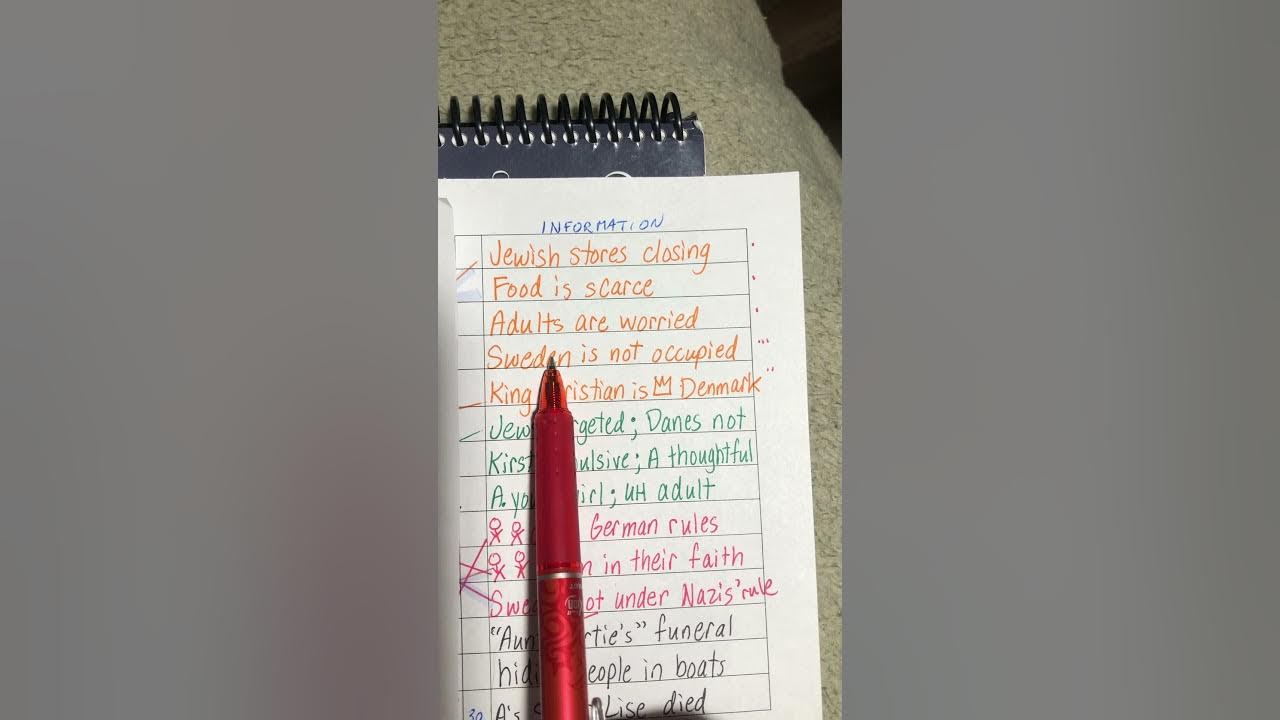 INFORMATION
Jewish stores closing
Food is scarce
Adults are worried
Sweden is not occupied
King ristian is Denmark
Jew rgeted; Danes not
Kirst ulsive; A thoughtful
A. yo irl; UH adult
German rules
n in their faith
Swe ot under Nazis' rule
"Aun rtie's" funeral
hid eople in boats
30 A's s Lise died